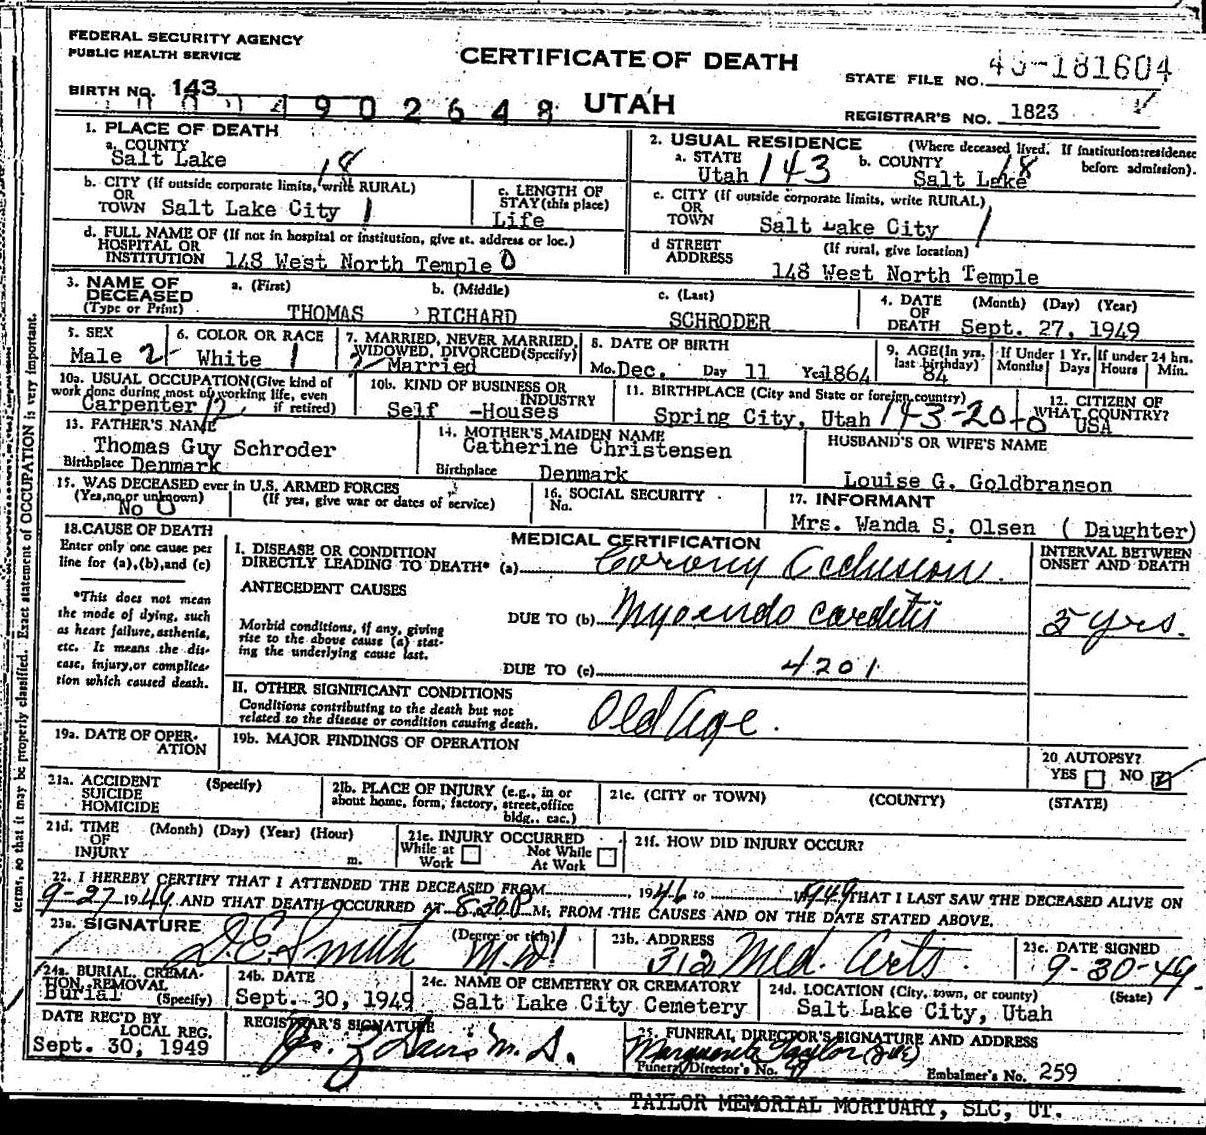 FEDERAL SECURITY AGENCY
PUBLIC HEALTH SERVICE
CERTIFICATE OF DEATH
STATE FILE NO. 181604
BIRTH NO. 143
4902648
UTAH
REGISTRAR'S NO. 1823
1. PLACE OF DEATH
a. COUNTY
Salt Lake 18
2. USUAL RESIDENCE (Where deceased lived. If institution: residence before admission).
a. STATE Utah 143 b. COUNTY Salt Lake 18
b. CITY (If outside corporate limits, write RURAL)
OR
TOWN Salt Lake City 1
c. LENGTH OF STAY (this place)
Life
c. CITY (If outside corporate limits, write RURAL)
OR
TOWN Salt Lake City 1
d. FULL NAME OF (If not in hospital or institution, give st. address or loc.)
HOSPITAL OR
INSTITUTION 148 West North Temple 0
d STREET ADDRESS (If rural, give location)
148 West North Temple
3. NAME OF DECEASED (Type or Print)
a. (First) b. (Middle) c. (Last)
THOMAS RICHARD SCHRODER
4. DATE OF DEATH (Month) (Day) (Year)
Sept. 27, 1949
5. SEX
Male 2
6. COLOR OR RACE
White 1
7. MARRIED, NEVER MARRIED, WIDOWED, DIVORCED (Specify)
2 Married
8. DATE OF BIRTH
Mo. Dec. Day 11 Yea 1864
9. AGE (In yrs. last birthday)
84
If Under 1 Yr. Months Days
If under 24 hrs. Hours Min.
10a. USUAL OCCUPATION (Give kind of work done during most of working life, even if retired)
Carpenter
10b. KIND OF BUSINESS OR INDUSTRY
Self -Houses
11. BIRTHPLACE (City and State or foreign country)
Spring City, Utah 143-20-0
12. CITIZEN OF WHAT COUNTRY?
USA
13. FATHER'S NAME
Thomas Guy Schroder
Birthplace Denmark
14. MOTHER'S MAIDEN NAME
Catherine Christensen
Birthplace Denmark
HUSBAND'S OR WIFE'S NAME
Louise G. Goldbranson
15. WAS DECEASED ever in U.S. ARMED FORCES
(Yes, no or unknown) (If yes, give war or dates of service)
No 0
16. SOCIAL SECURITY No.
17. INFORMANT
Mrs. Wanda S. Olsen ( Daughter)
18. CAUSE OF DEATH
Enter only one cause per line for (a), (b), and (c)
*This does not mean the mode of dying, such as heart failure, asthenia, etc. It means the disease, injury, or complication which caused death.
MEDICAL CERTIFICATION
I. DISEASE OR CONDITION DIRECTLY LEADING TO DEATH* (a) Corony Occlusion
ANTECEDENT CAUSES
Morbid conditions, if any, giving rise to the above cause (a) stating the underlying cause last.
DUE TO (b) Myoendo carditis
DUE TO (c) 4201
INTERVAL BETWEEN ONSET AND DEATH
5 yrs.
II. OTHER SIGNIFICANT CONDITIONS
Conditions contributing to the death but not related to the disease or condition causing death.
Old Age.
19a. DATE OF OPERATION
19b. MAJOR FINDINGS OF OPERATION
20 AUTOPSY?
YES NO
21a. ACCIDENT SUICIDE HOMICIDE (Specify)
21b. PLACE OF INJURY (e.g., in or about home, form, factory, street, office bldg., eac.)
21c. (CITY or TOWN) (COUNTY) (STATE)
21d. TIME OF INJURY (Month) (Day) (Year) (Hour) m.
21e. INJURY OCCURRED
While at Work Not While At Work
21f. HOW DID INJURY OCCUR?
22. I HEREBY CERTIFY THAT I ATTENDED THE DECEASED FROM , 1946 to 1949 THAT I LAST SAW THE DECEASED ALIVE ON
9-27 1949 AND THAT DEATH OCCURRED AT 8:30 P M, FROM THE CAUSES AND ON THE DATE STATED ABOVE.
23a. SIGNATURE (Degree or title)
D. E. Smith M.D.
23b. ADDRESS
312 Med. Arts.
23c. DATE SIGNED
9-30-49
24a. BURIAL, CREMATION, REMOVAL (Specify)
Burial
24b. DATE
Sept. 30, 1949
24c. NAME OF CEMETERY OR CREMATORY
Salt Lake City Cemetery
24d. LOCATION (City, town, or county) (State)
Salt Lake City, Utah
DATE REC'D BY LOCAL REG.
Sept. 30, 1949
REGISTRAR'S SIGNATURE
Davis M. D.
25. FUNERAL DIRECTOR'S SIGNATURE AND ADDRESS
Marguerite Taylor
Funeral Director's No. Embalmer's No. 259
TAYLOR MEMORIAL MORTUARY, SLC, UT.
terms, so that it may be properly classified. Exact statement of OCCUPATION is very important.